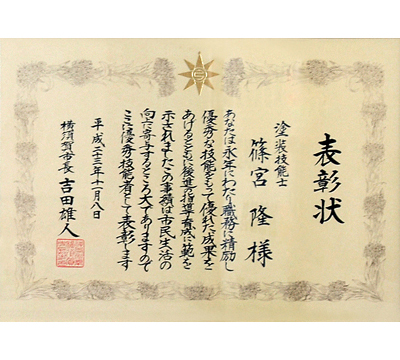 表彰状
塗装技能士
篠宮隆様
あなたは永年にわたり職務に精励し
優秀な技能をもって優れた成果を
あげるとともに後進の指導育成に範を
示されましたこの事績は市民生活の
向上に寄与するところ大でありますので
ここに優秀技能者として表彰します
平成二十三年十一月八日
横須賀市長 吉田雄人